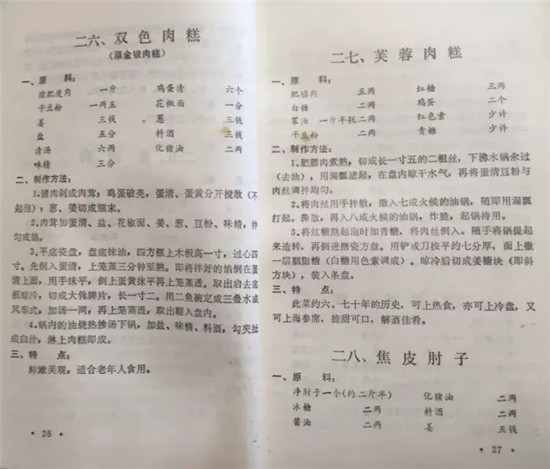 二六、双色肉糕
(原金银肉糕)
一、原 料:
猪肥瘦肉 一斤 鸡蛋清 六个
干豆粉 一两五 花椒面 一分
姜 三钱 葱 三钱
盐 五分 料酒 三钱
清汤 六两 化猪油 二两
味精 三分
二、制作方法:
1.猪肉剁成肉茸;鸡蛋破壳,蛋清、蛋黄分开搅散(不
起泡);葱、姜切成颗末。
2.肉茸加蛋清、盐、花椒面、姜、葱、豆粉、味精,拌
匀成茄。
3.平底瓷盘,盘底抹油,四方框上木板高一寸,过心四
寸。先倒入蛋清,上笼蒸三分钟至熟。即将拌好的馅倒在蛋
清上面,用手抹平,倒上蛋黄抹平再上笼蒸透。取出启去底
板晾冷,切成大骨牌片,长一寸二。用二鱼碗定成三叠水或
风车式,加汤一两,再上笼蒸透,取出翻入盘内。
4.锅内的油烧热掺汤下锅,加盐、味精、料酒,勾芡扯
成白汁,淋上肉糕即成。
三、特 点:
鲜嫩美观,适合老年人食用。
· 26 ·
二七、芙蓉肉糕
一、原 料:
肥膘肉 五两 红糖 三两
白糖 二两 鸡蛋 二个
菜油 一斤半耗二两 红色素 少许
干豆粉 二两 青糖 少许
二、制作方法:
1.肥膘肉煮熟,切成长一寸五的二粗丝,下沸水锅氽过
(去油),用漏瓢滤起,在盘内晾干水气,再将蛋清豆粉与
肉丝调拌均匀。
2.将肉丝用手拌散,撒入七成火候的油锅,随即用漏瓢
打起,撕散,再入八成火候的油锅,炸脆,起锅待用。
3.将红糖熬起泡时加青糖,将肉丝倒入。随手将锅提起
来造转,再倒进搪瓷方盘。用铲或刀按平约七分厚,面上撒
一层胭脂糖(白糖用色素调成)。晾冷后切成姜糖块(即斜
方块),装入条盘。
三、特 点:
此菜约六、七十年的历史,可上热食,亦可上冷盘,又
可上海参席,脆甜可口,解酒佳肴。
二八、焦皮肘子
一、原 料:
净肘子一个(约二斤半) 化猪油 二两
冰糖 二两 料酒 二两
酱油 二两 姜 五钱
· 27 ·